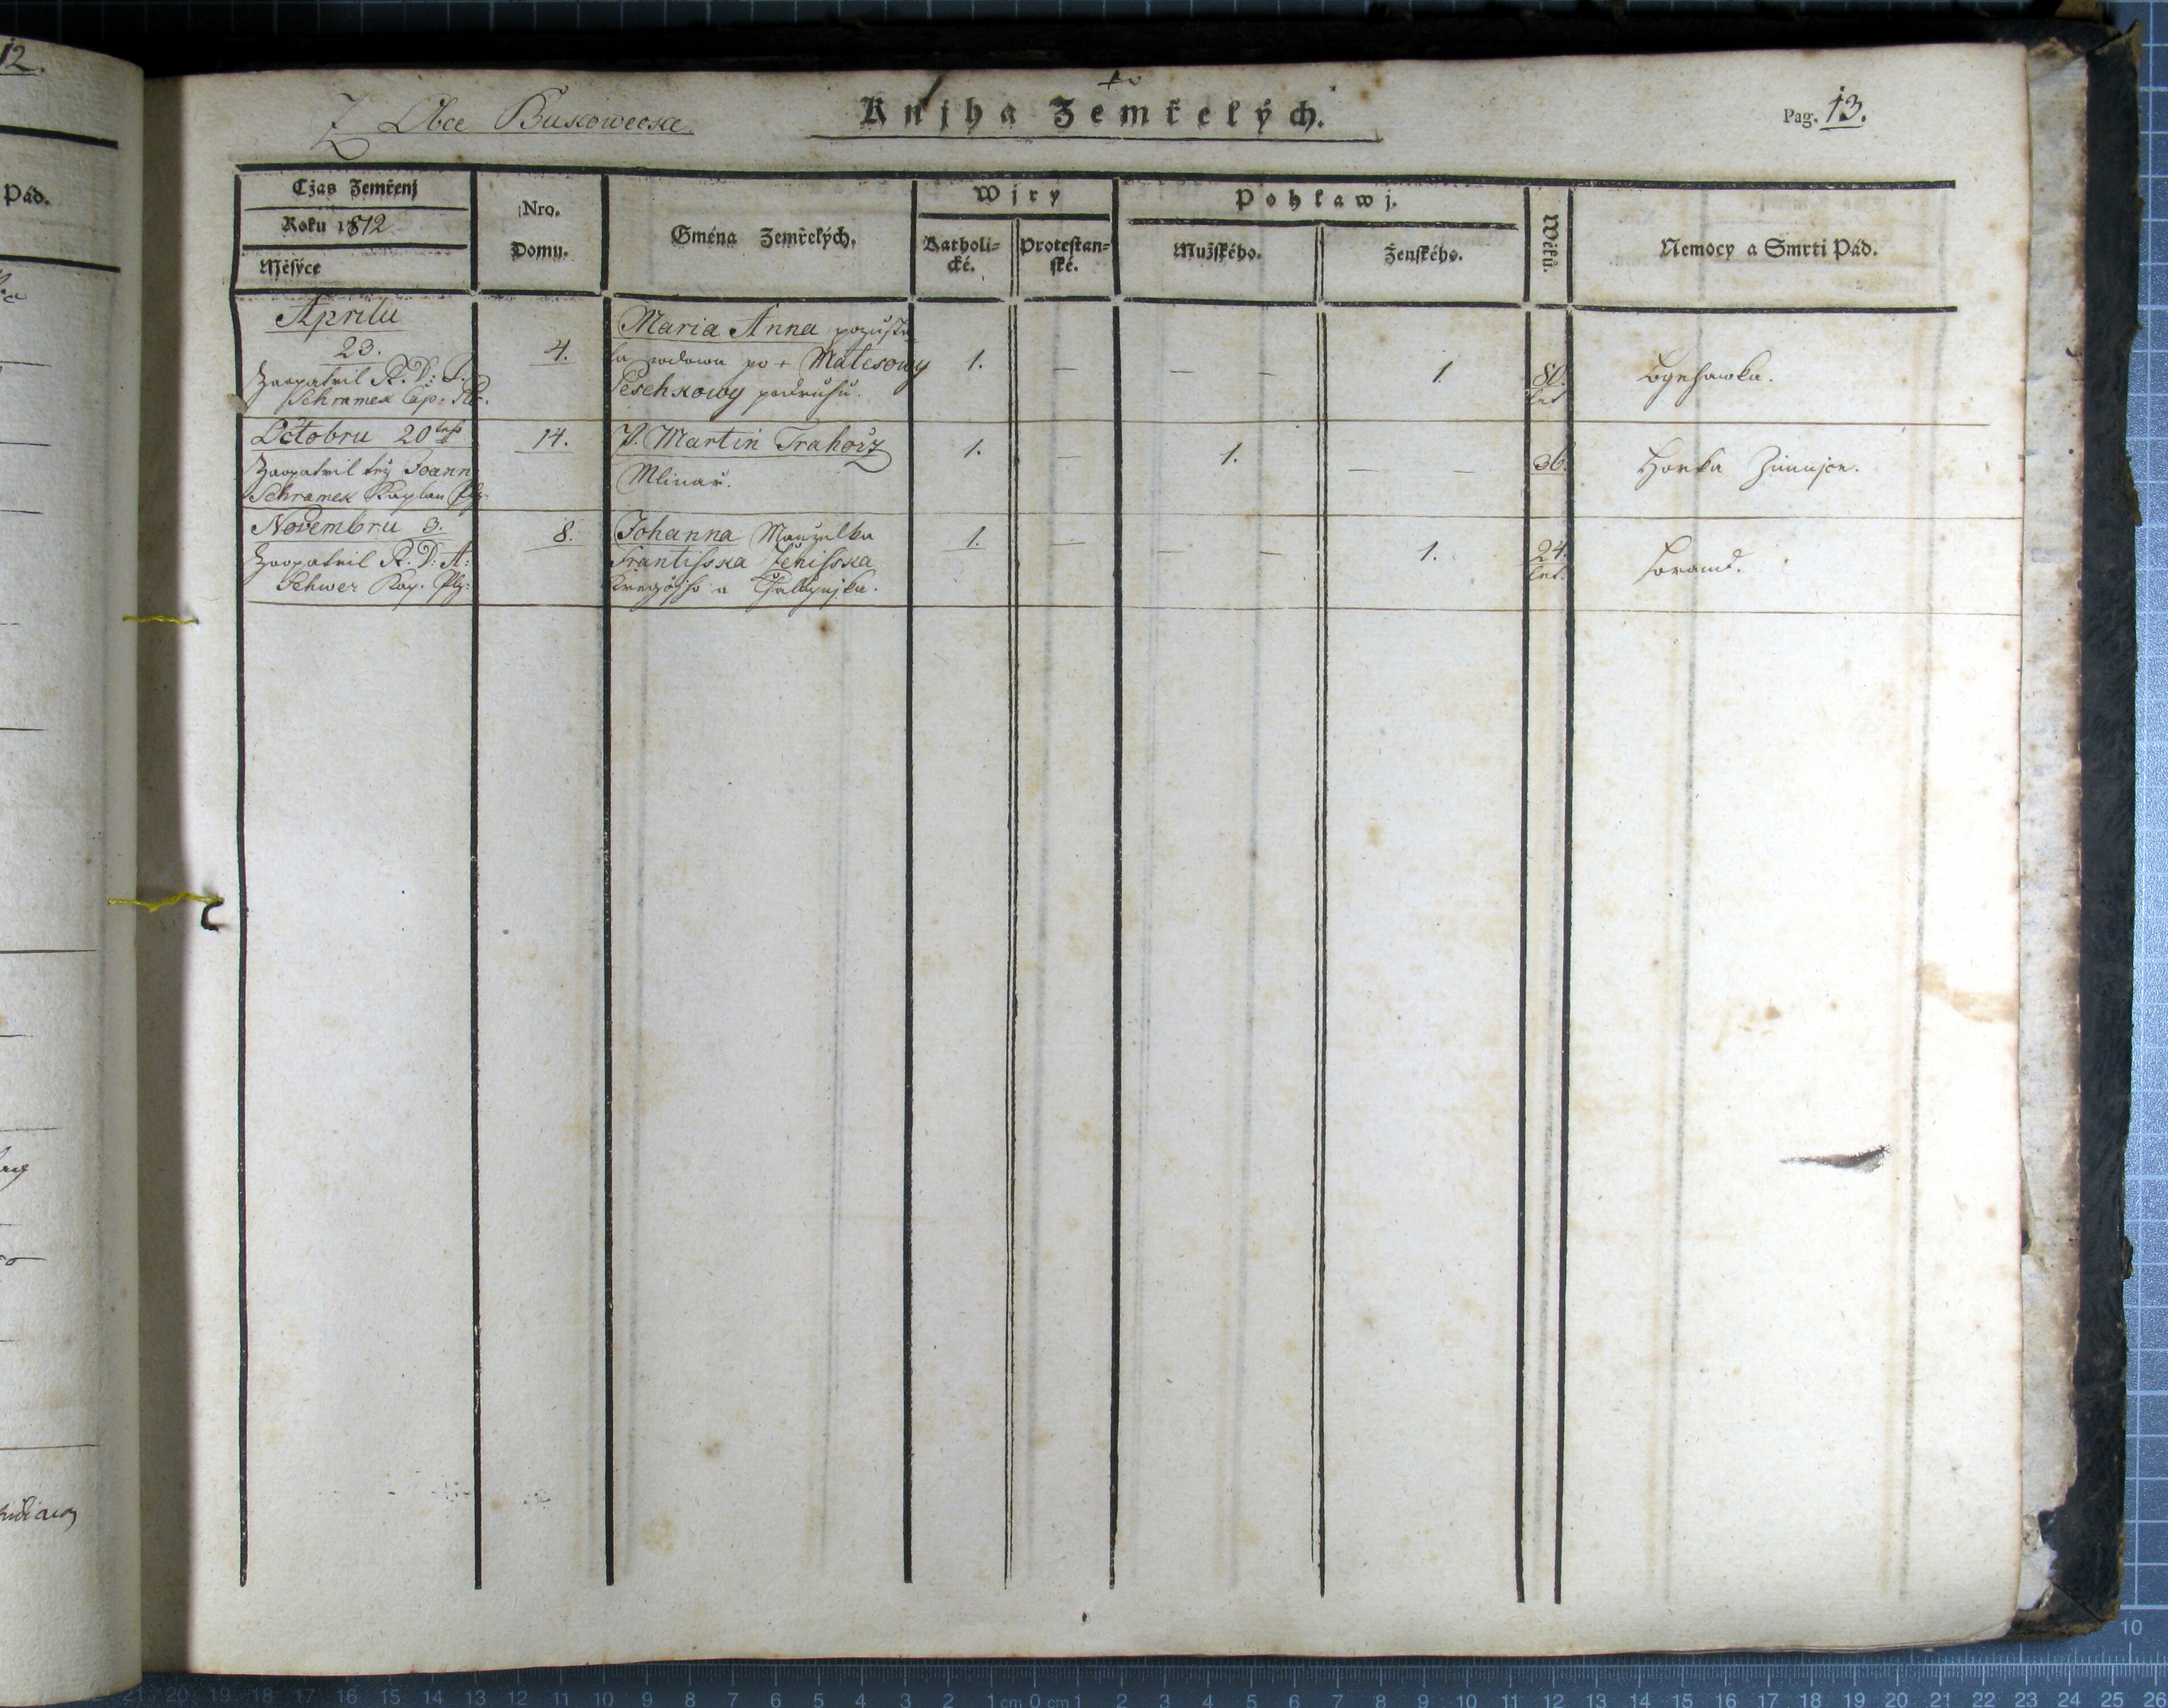 12.
Pád.
Z Obce Bukowecske.
Knjha Zemřelých.
Pag. 13.
Cžas Zemřenj
Roku 1812
Měsýce
Nro.
Domu.
Gména Zemřelých.
Wjry
Katholi=
cké.
Protestan=
ské.
Pohlawj.
Mužského.
Ženského.
Wěků.
Nemocy a Smrti Pád.
Aprilu
23.
Zaopatril R. D: J.
Schramek Cap:
4.
Maria Anna pozusta
la wdowa po + Matesowy
Peschkowy podruhu.
1.
—
— —
1.
80.
let
Octobru 20
Zaopatril Joann
Schramek Kaplan
14.
P. Martin Trahorz
Mlinař.
1.
—
1.
— —
36.
Horka Zimnice.
Novembru 3.
Zaopatril R. D: A:
Schwer Kap. Plz:
8.
Johanna Manzelka
Frantisska Jenisska
1.
—
— —
1.
24.
let.